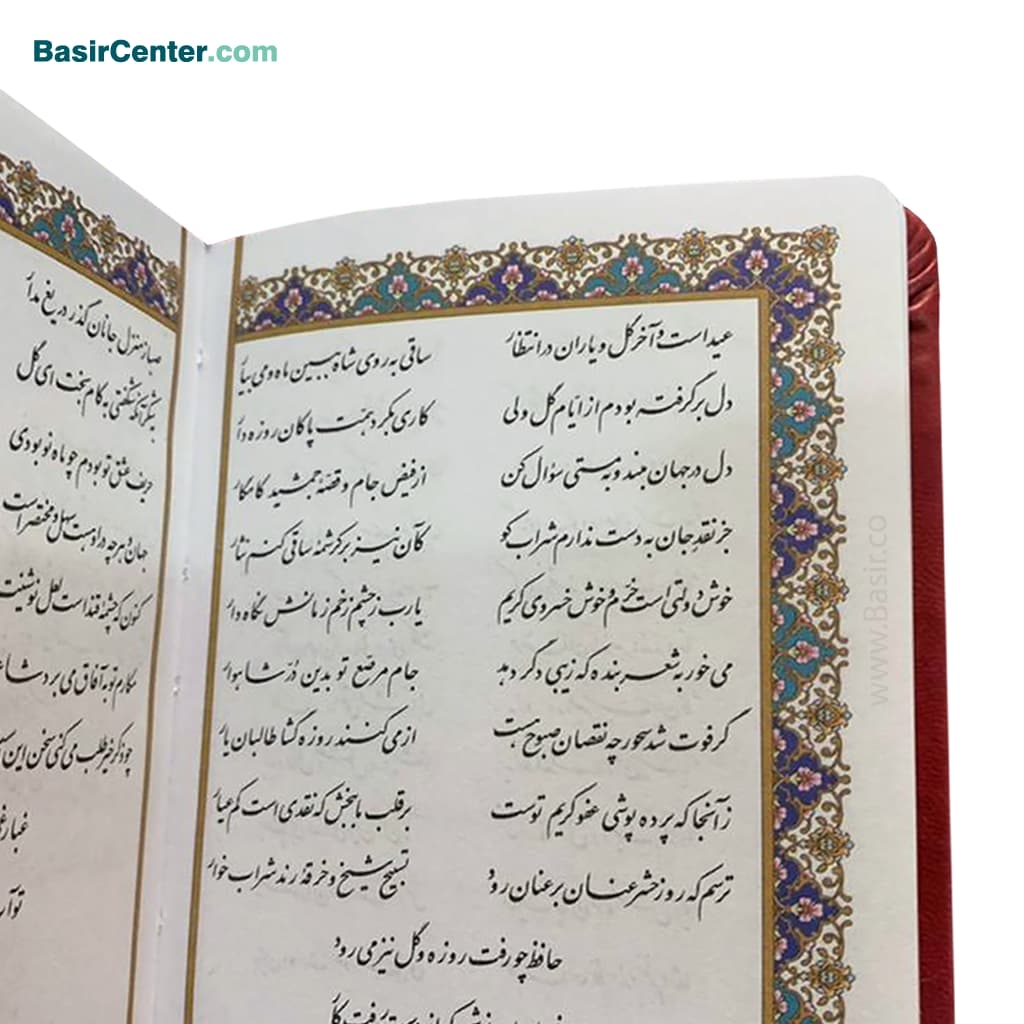 BasirCenter.com
عید است و آخر گل و یاران در انتظار
ساقی به روی شاه ببین ماه و می بیار
دل برگرفته بودم از ایام گل ولی
کاری بکرد همت پاکان روزه دار
دل در جهان مبند و به مستی سؤال کن
از فیض جام و قصهٔ جمشید کامکار
جز نقد جان به دست ندارم شراب کو
کآن نیز بر کرشمهٔ ساقی کنم نثار
خوش دولتی است خرّم و خوش خسروی کریم
یارب ز چشم زخم زمانش نگاه دار
می خور به شعر بنده که زیبی دگر دهد
جام مرصع تو بدین درّ شاهوار
گر فوت شد سحور چه نقصان صبوح هست
از می کنند روزه گشا طالبان یار
زآنجا که پرده پوشی عفو کریم توست
بر قلب ما ببخش که نقدی است کم عیار
ترسم که روز حشر عنان بر عنان رود
تسبیح شیخ و خرقهٔ رند شراب خوار
حافظ چو رفت روزه و گل نیز می رود
صبا ز منزل جانان گذر دریغ مدار
به شکر آنکه شگفتی به کام بخت ای گل
حریف عشق تو بودم چو ماه نو بودی
جهان و هر چه در او هست سهل و مختصر است
کنون که چشمهٔ قند است لعل نوشینت
مکارم تو به آفاق می برد
چو ذکر خیر طلب می کنی سخن این
www.Basir.co